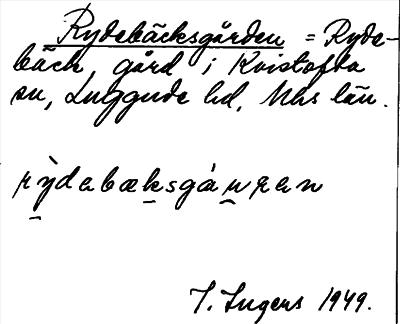 Rydebäcksgården = Ryde-
bäck, gård i Kvistofta
sn, Luggude hd, Mhs län.
rỳdabæksgáuran
I. Ingers 1949.